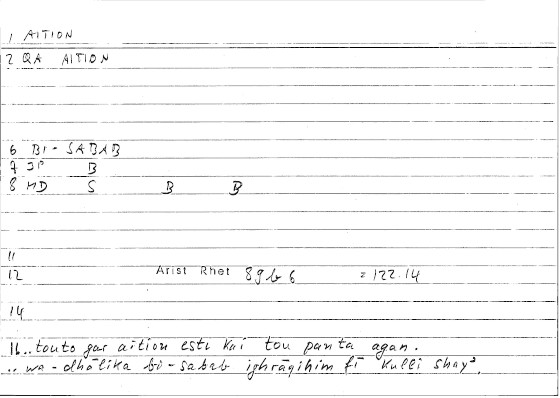 1 AITION
2 QA AITION
6 BI - SABAB
7 JP B
8 MD S B B
11
12 Arist Rhet 89b6 = 122.14
14
16 ..touto gar aition esti kai tou panta agan.
.. wa-dhālika bi-sabab ighrāqihim fī kulli shayʾ.